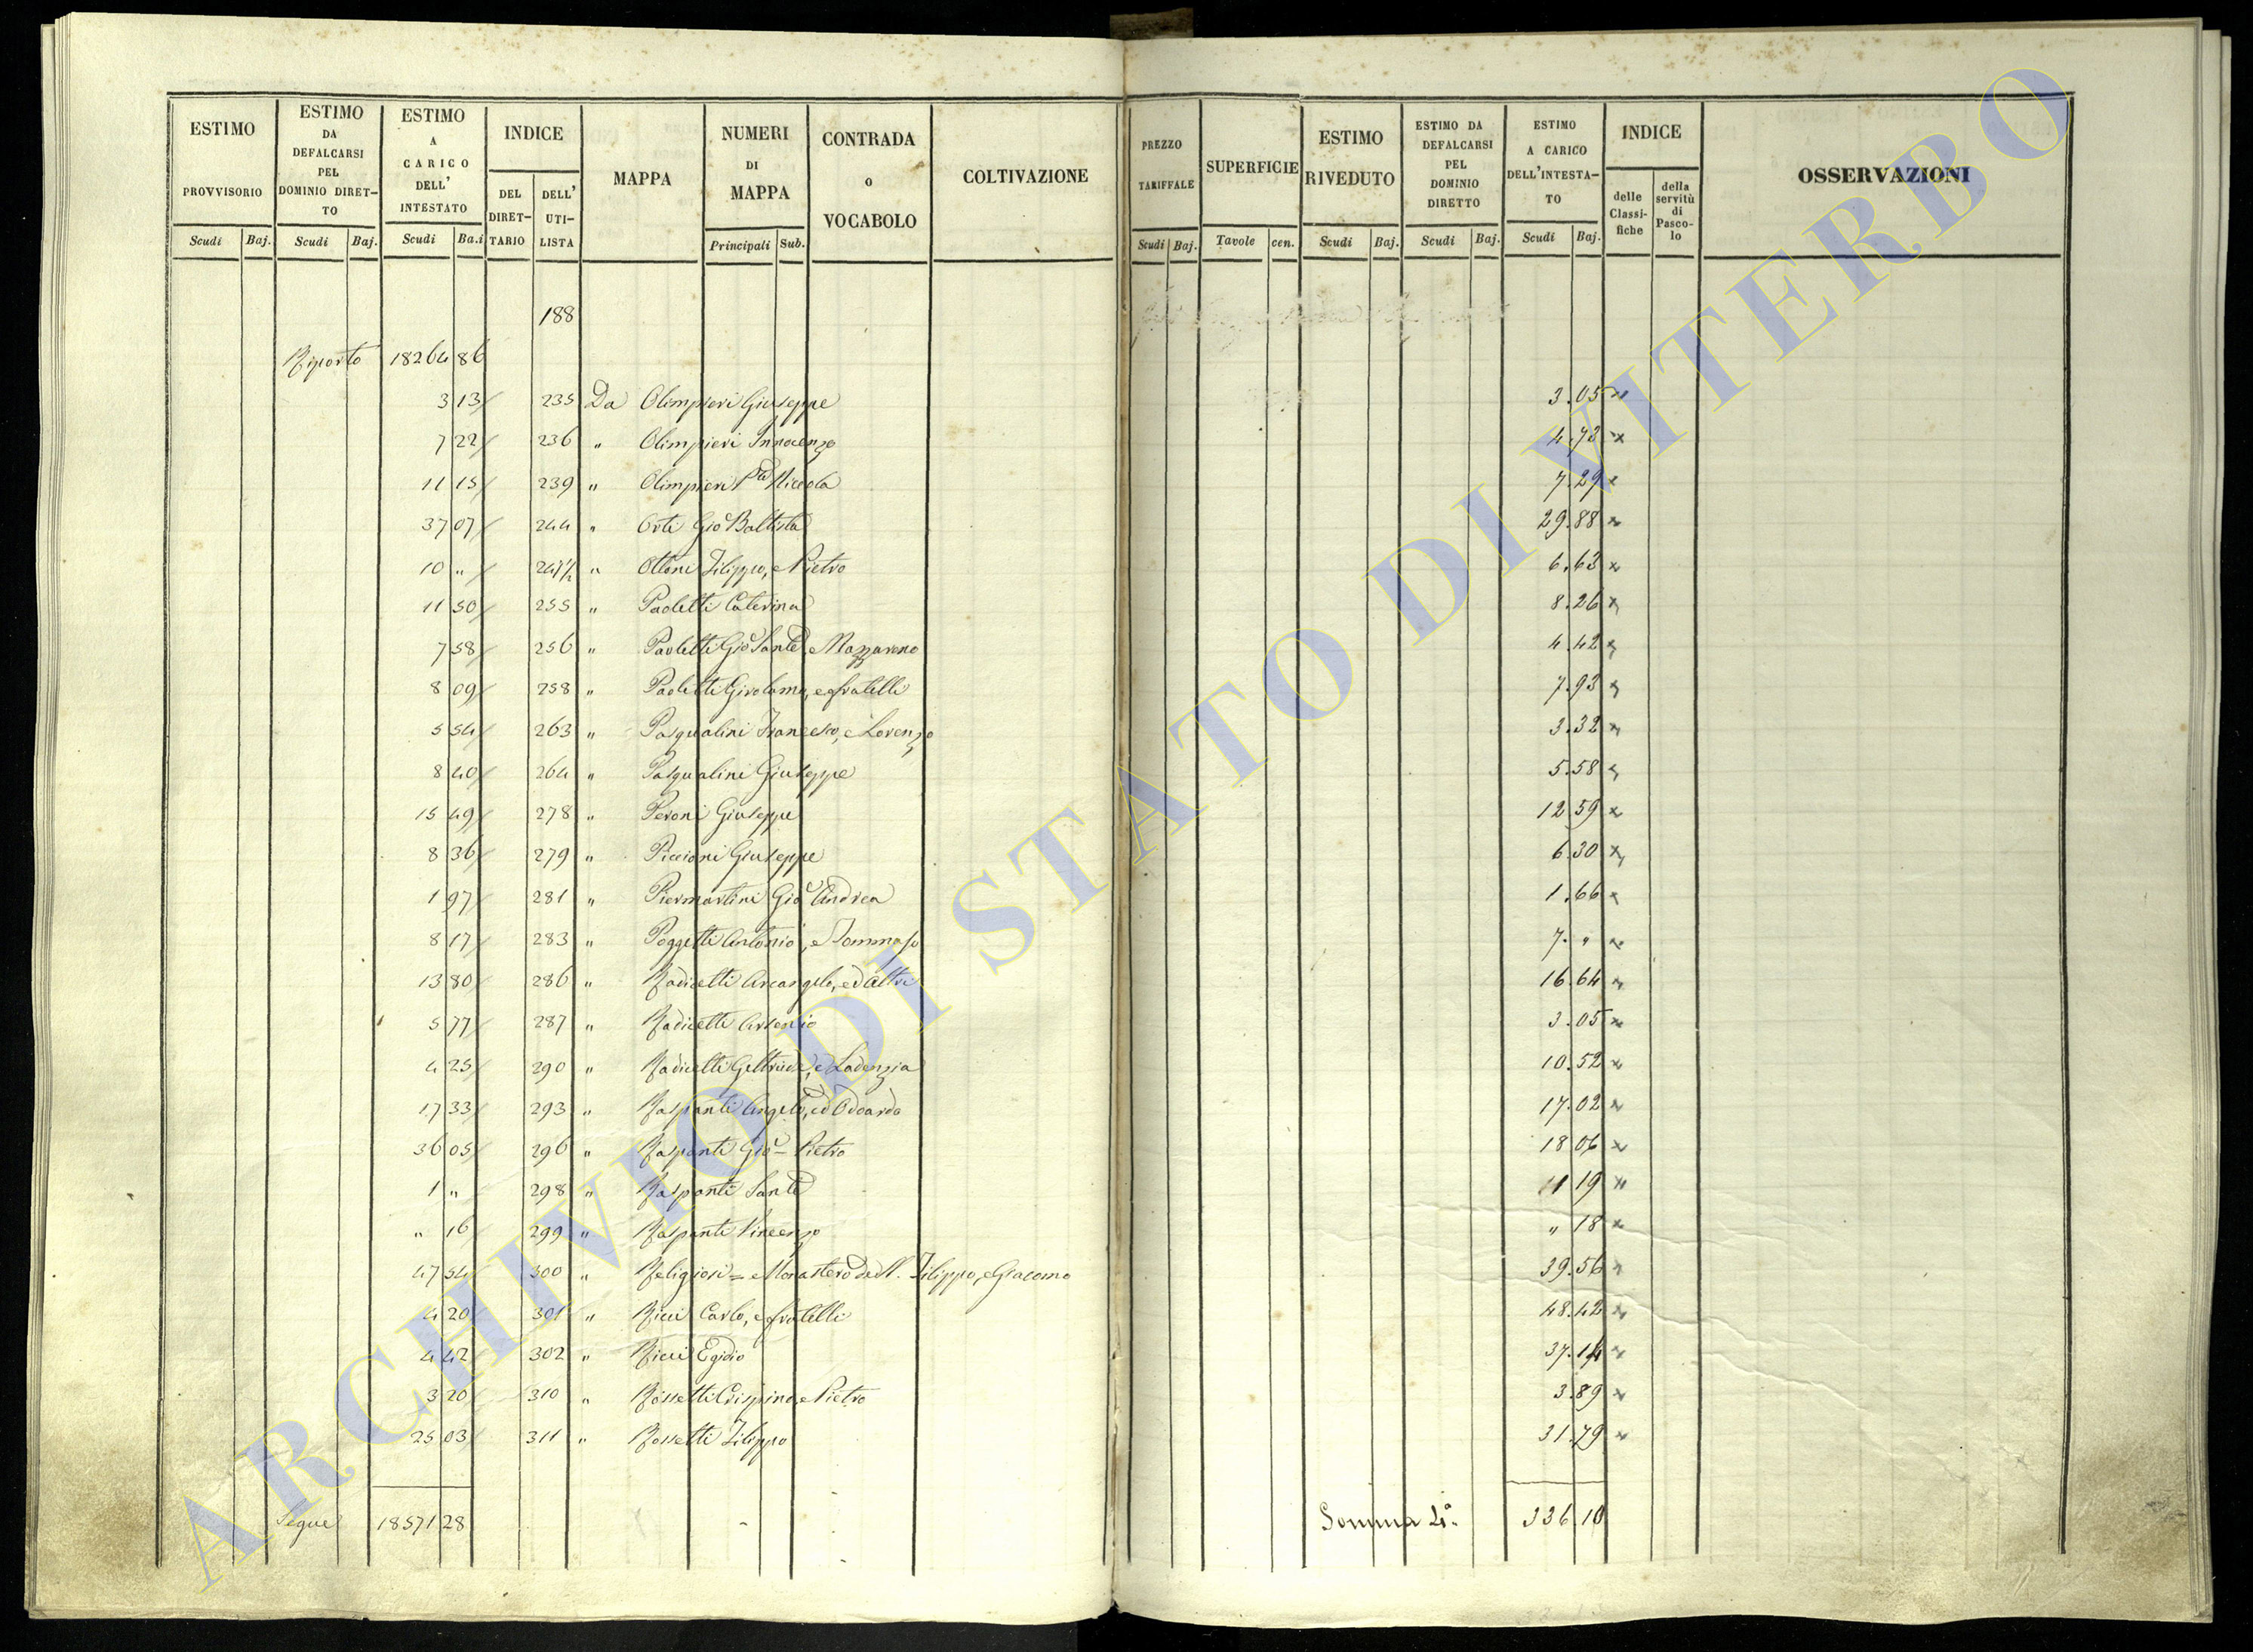 ESTIMO PROVVISORIO Scudi Baj.
ESTIMO DA DEFALCARSI PEL DOMINIO DIRET-TO Scudi Baj.
ESTIMO A CARICO DELL' INTESTATO Scudi Ba.i
INDICE DEL DIRET-TARIO DELL' UTI-LISTA
MAPPA
NUMERI DI MAPPA Principali Sub.
CONTRADA o VOCABOLO
COLTIVAZIONE
PREZZO TARIFFALE Scudi Baj.
SUPERFICIE Tavole cen.
ESTIMO RIVEDUTO Scudi Baj.
ESTIMO DA DEFALCARSI PEL DOMINIO DIRETTO Scudi Baj.
ESTIMO A CARICO DELL'INTESTA-TO Scudi Baj.
INDICE delle Classi-fiche della servitù di Pasco-lo
OSSERVAZIONI
188
Riporto 18264 86
3 13 235 Da Olimpieri Giuseppe 3.05
7 22 236 " Olimpieri Innocenzo 4.73
11 15 239 " Olimpieri Niccola 7.29
37 07 244 " Orti Gio Battista 29.88
10 " 247½ " Ottoni Filippo, e Pietro 6.63
11 50 255 " Paoletti Caterina 8.26
7 58 256 " Paoletti Gio Sante, e Nazzareno 4.42
8 09 258 " Paoletti Girolamo, e fratelli 7.93
5 54 263 " Pasqualini Francesco, e Lorenzo 3.32
8 40 264 " Pasqualini Giuseppe 5.58
15 49 278 " Peroni Giuseppe 12 59
8 36 279 " Piccioni Giuseppe 6.30
1 97 281 " Piermartini Gio Andrea 1.66
8 17 283 " Poggetti Antonio, e Tommaso 7. "
13 80 286 " Radicetti Arcangelo, ed altri 16.64
5 77 287 " Radicetti Arsenio 3.05
4 25 290 " Radicetti Geltrude, e Ladenzia 10.52
17 33 293 " Raspanti Angelo, ed Odoardo 17.02
36 05 296 " Raspanti Gio Pietro 18 06
1 " 298 " Raspanti Sante 19
" 16 299 " Raspanti Vincenzo " 18
47 54 300 " Religiosi = Monastero de S. Filippo, e Giacomo 39.56
4 20 301 " Ricci Carlo, e fratelli 48.42
4 42 302 " Ricci Egidio 37.14
3 20 310 " Rossetti Crispino, e Pietro 3.89
25 03 311 " Rossetti Filippo 31.79
Segue 18571 28 Somma 4a 336.10
ARCHIVIO DI STATO DI VITERBO